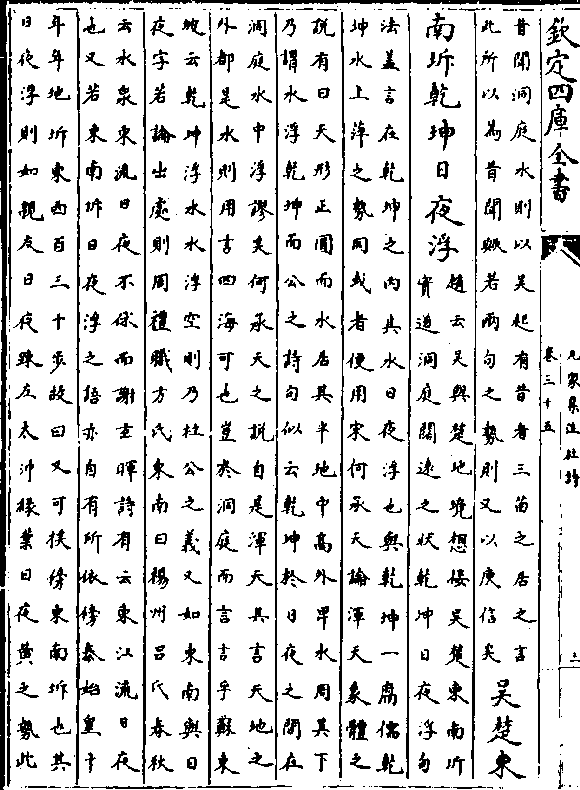 欽定四庫全書
九家集注杜詩
卷三十五
昔聞洞庭水則以吴起有昔者三苗之居之言
此所以為昔聞歟若兩句之勢則又以庾信矣
吴楚東
南坼乾坤日夜浮
趙云吴與楚地晚想接吴楚東南坼
實道洞庭闊遠之狀乾坤日夜浮句
法蓋言在乾坤之内其水日夜浮也與乾坤一腐儒乾
坤水上萍之勢同或者便用宋何承天論渾天象體之
說有曰天形正圓而水居其半地中高外卑水周其下
乃謂水浮乾坤而公之詩句似云乾坤於日夜之間在
洞庭水中浮謬矣何承天之說自是渾天其言天地之
外都是水則用言四海可也豈於洞庭而言言乎蘇東
坡云乾坤浮水水浮空則乃杜公之義又如東南與日
夜字若論出處則周禮職方氏東南曰揚州吕氏春秋
云水泉東流日夜不休而謝玄暉詩有云東江流日夜
也又若東南坼日夜浮之語亦自有所依傍秦始皇十
年年地坼東西百三十步故曰又可挨傍東南坼也其
日夜浮則如親友日夜踈左太沖綠葉日夜黄之勢此